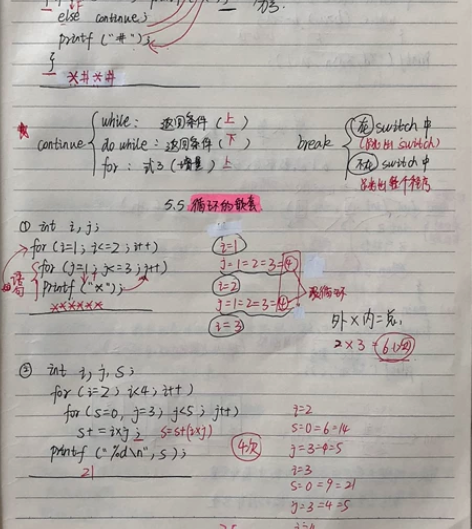 else continue;
printf ("#");
}
*#*#
while: 返回条件 (上)
continue do while: 返回条件 (下)
for: 式3 (增量) 上
break
在 switch 中
(跳出 switch)
不在 switch 中
跳出整个程序
5.5 循环的嵌套
① int i, j;
for (i=1; i<=2; i++)
for (j=1; j<=3; j++)
printf ("*");
语句
******
i=1
j=1=2=3=④
i=2
j=1=2=3=④
i=3
跳循环
外×内=总
2×3=6(次)
② int i, j, s;
for (i=2; i<4; i++)
for (s=0, j=3; j<5; j++)
s+=i×j; s=s+(i×j)
printf ("%d\n", s);
21
4次
i=2
s=0=6=14
j=3=4=5
i=3
s=0=9=21
j=3=4=5